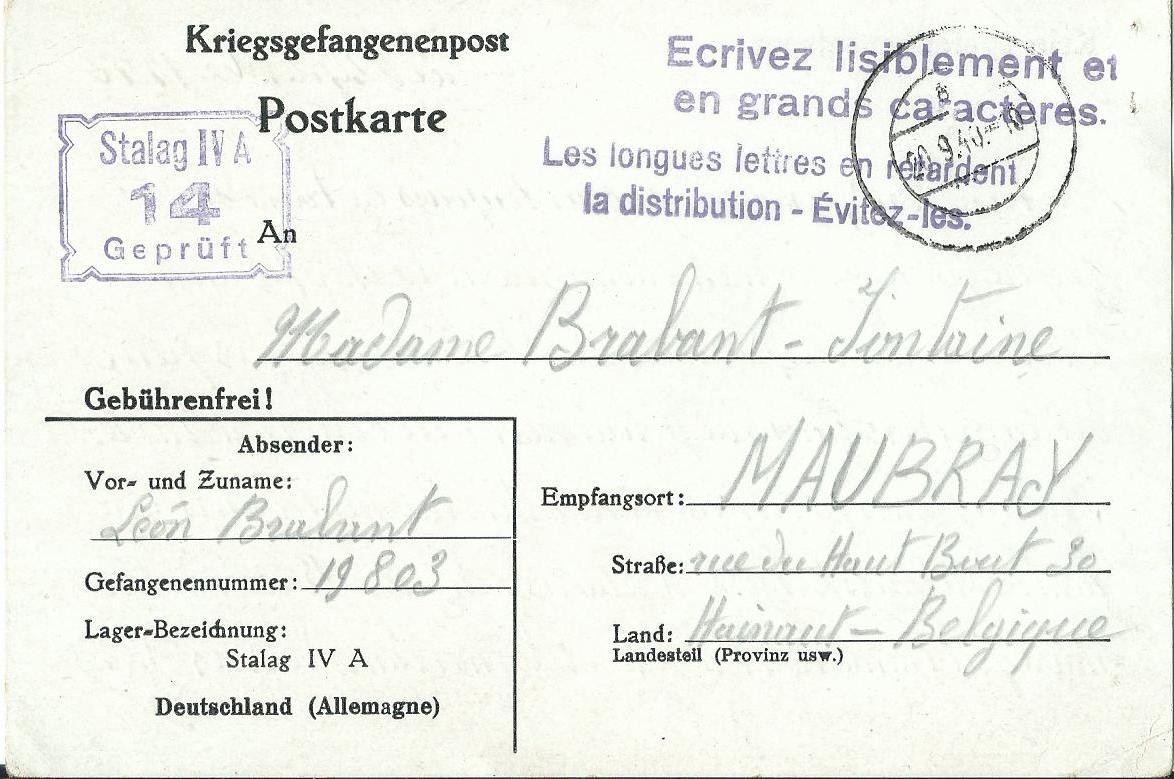 Kriegsgefangenenpost
Postkarte
Ecrivez lisiblement et
en grands caractères.
Les longues lettres en retardent
la distribution - Évitez-les.
20.9.40.-10
Stalag IV A
14
Geprüft
An
Madame Brabant - Fontaine
Gebührenfrei!
Absender:
Vor- und Zuname:
Léon Brabant
Gefangenennummer: 19803
Lager-Bezeichnung:
Stalag IV A
Deutschland (Allemagne)
Empfangsort: MAUBRAY
Straße: rue du Haut Bout 30
Land: Hainaut - Belgique
Landesteil (Provinz usw.)